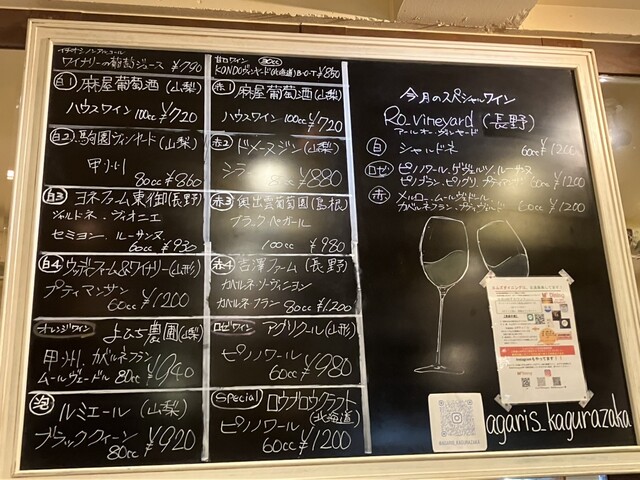 イチオシノンアルコール
ワイナリーの葡萄ジュース ¥790
白1 麻屋葡萄酒(山梨)
ハウスワイン 100cc ¥720
白2 駒園ヴィンヤード(山梨)
甲州
80cc ¥860
白3 ヨネファーム東御(長野)
シャルドネ、ヴィオニエ
セミヨン、ルーサンヌ
60cc ¥930
白4 ウッディファーム&ワイナリー(山形)
プティマンサン
60cc ¥1200
オレンジワイン よひち農園(山梨)
甲州、カベルネフラン
ムールヴェードル 80cc ¥940
泡 ルミエール(山梨)
ブラッククィーン ¥920
80cc
甘口ワイン 80cc
KONDOヴィンヤード(北海道)B・O・T ¥850
赤1 麻屋葡萄酒(山梨)
ハウスワイン 100cc ¥720
赤2 ドメーヌジン(山梨)
シラー
80cc ¥880
赤3 奥出雲葡萄園(島根)
ブラックペガール
100cc ¥980
赤4 吉澤ファーム(長野)
カベルネソーヴィニヨン
カベルネフラン 80cc ¥1200
ロゼワイン アグリクール(山形)
ピノノワール ¥980
60cc
Special ロウブロウクラフト
(北海道)
ピノノワール
60cc ¥1200
今月のスペシャルワイン
Ro.vineyard (長野)
アールオー・ヴィンヤード
白 シャルドネ 60cc ¥1200
ロゼ ピノノワール、ゲヴェルツ、ルーサンヌ
ピノブラン、ピノグリ、プティマンサン 60cc ¥1200
赤 メルロー、ムールヴェドル
カベルネフラン、プティヴェルド 60cc ¥1200
Instagramもやってます!!
AGARIS_KAGURAZAKA
agaris_kagurazaka